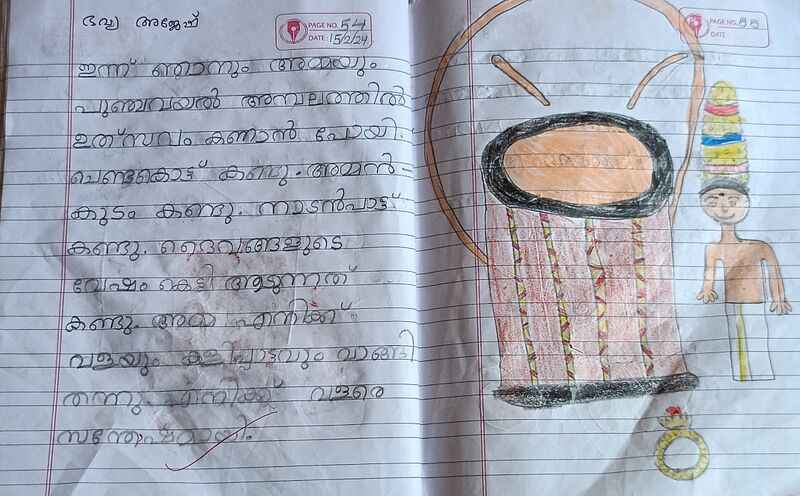 ഭവ്യ അജേഷ്
PAGE NO. 54
DATE: 15/2/24
ഇന്ന് ഞാനും അമ്മയും
പുഞ്ചവയൽ അമ്പലത്തിൽ
ഉത്സവം കണാൻ പോയി.
ചെണ്ടകൊട്ട് കണ്ടു. അമ്മൻ-
കുടം കണ്ടു. നാടൻപാട്ട്
കണ്ടു. ദൈവങ്ങളുടെ
വേഷം കെട്ടി ആടുന്നത്
കണ്ടു. അമ്മ എനിക്ക്
വളയും കളിപ്പാട്ടവും വാങ്ങി
തന്നു. എനിക്ക് വളരെ
സന്തോഷമായി.
PAGE NO. 55
DATE: